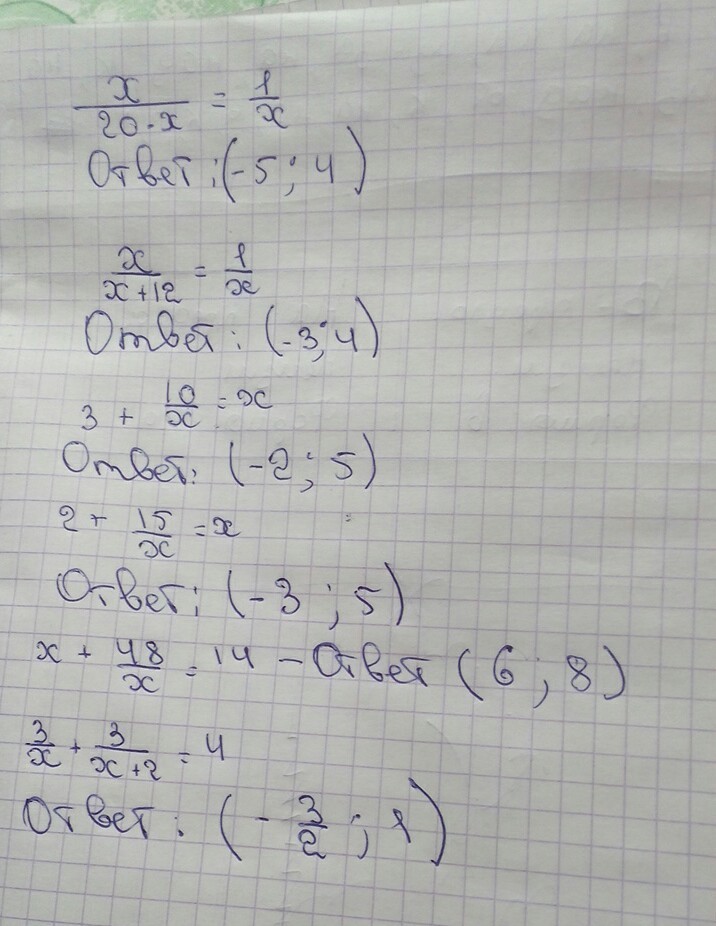 x/(20-x) = 1/x
Ответ: (-5; 4)
x/(x+12) = 1/x
Ответ: (-3; 4)
3 + 10/x = x
Ответ: (-2; 5)
2 + 15/x = x
Ответ: (-3; 5)
x + 48/x = 14 - Ответ (6; 8)
3/x + 3/(x+2) = 4
Ответ: (-3/2; 1)